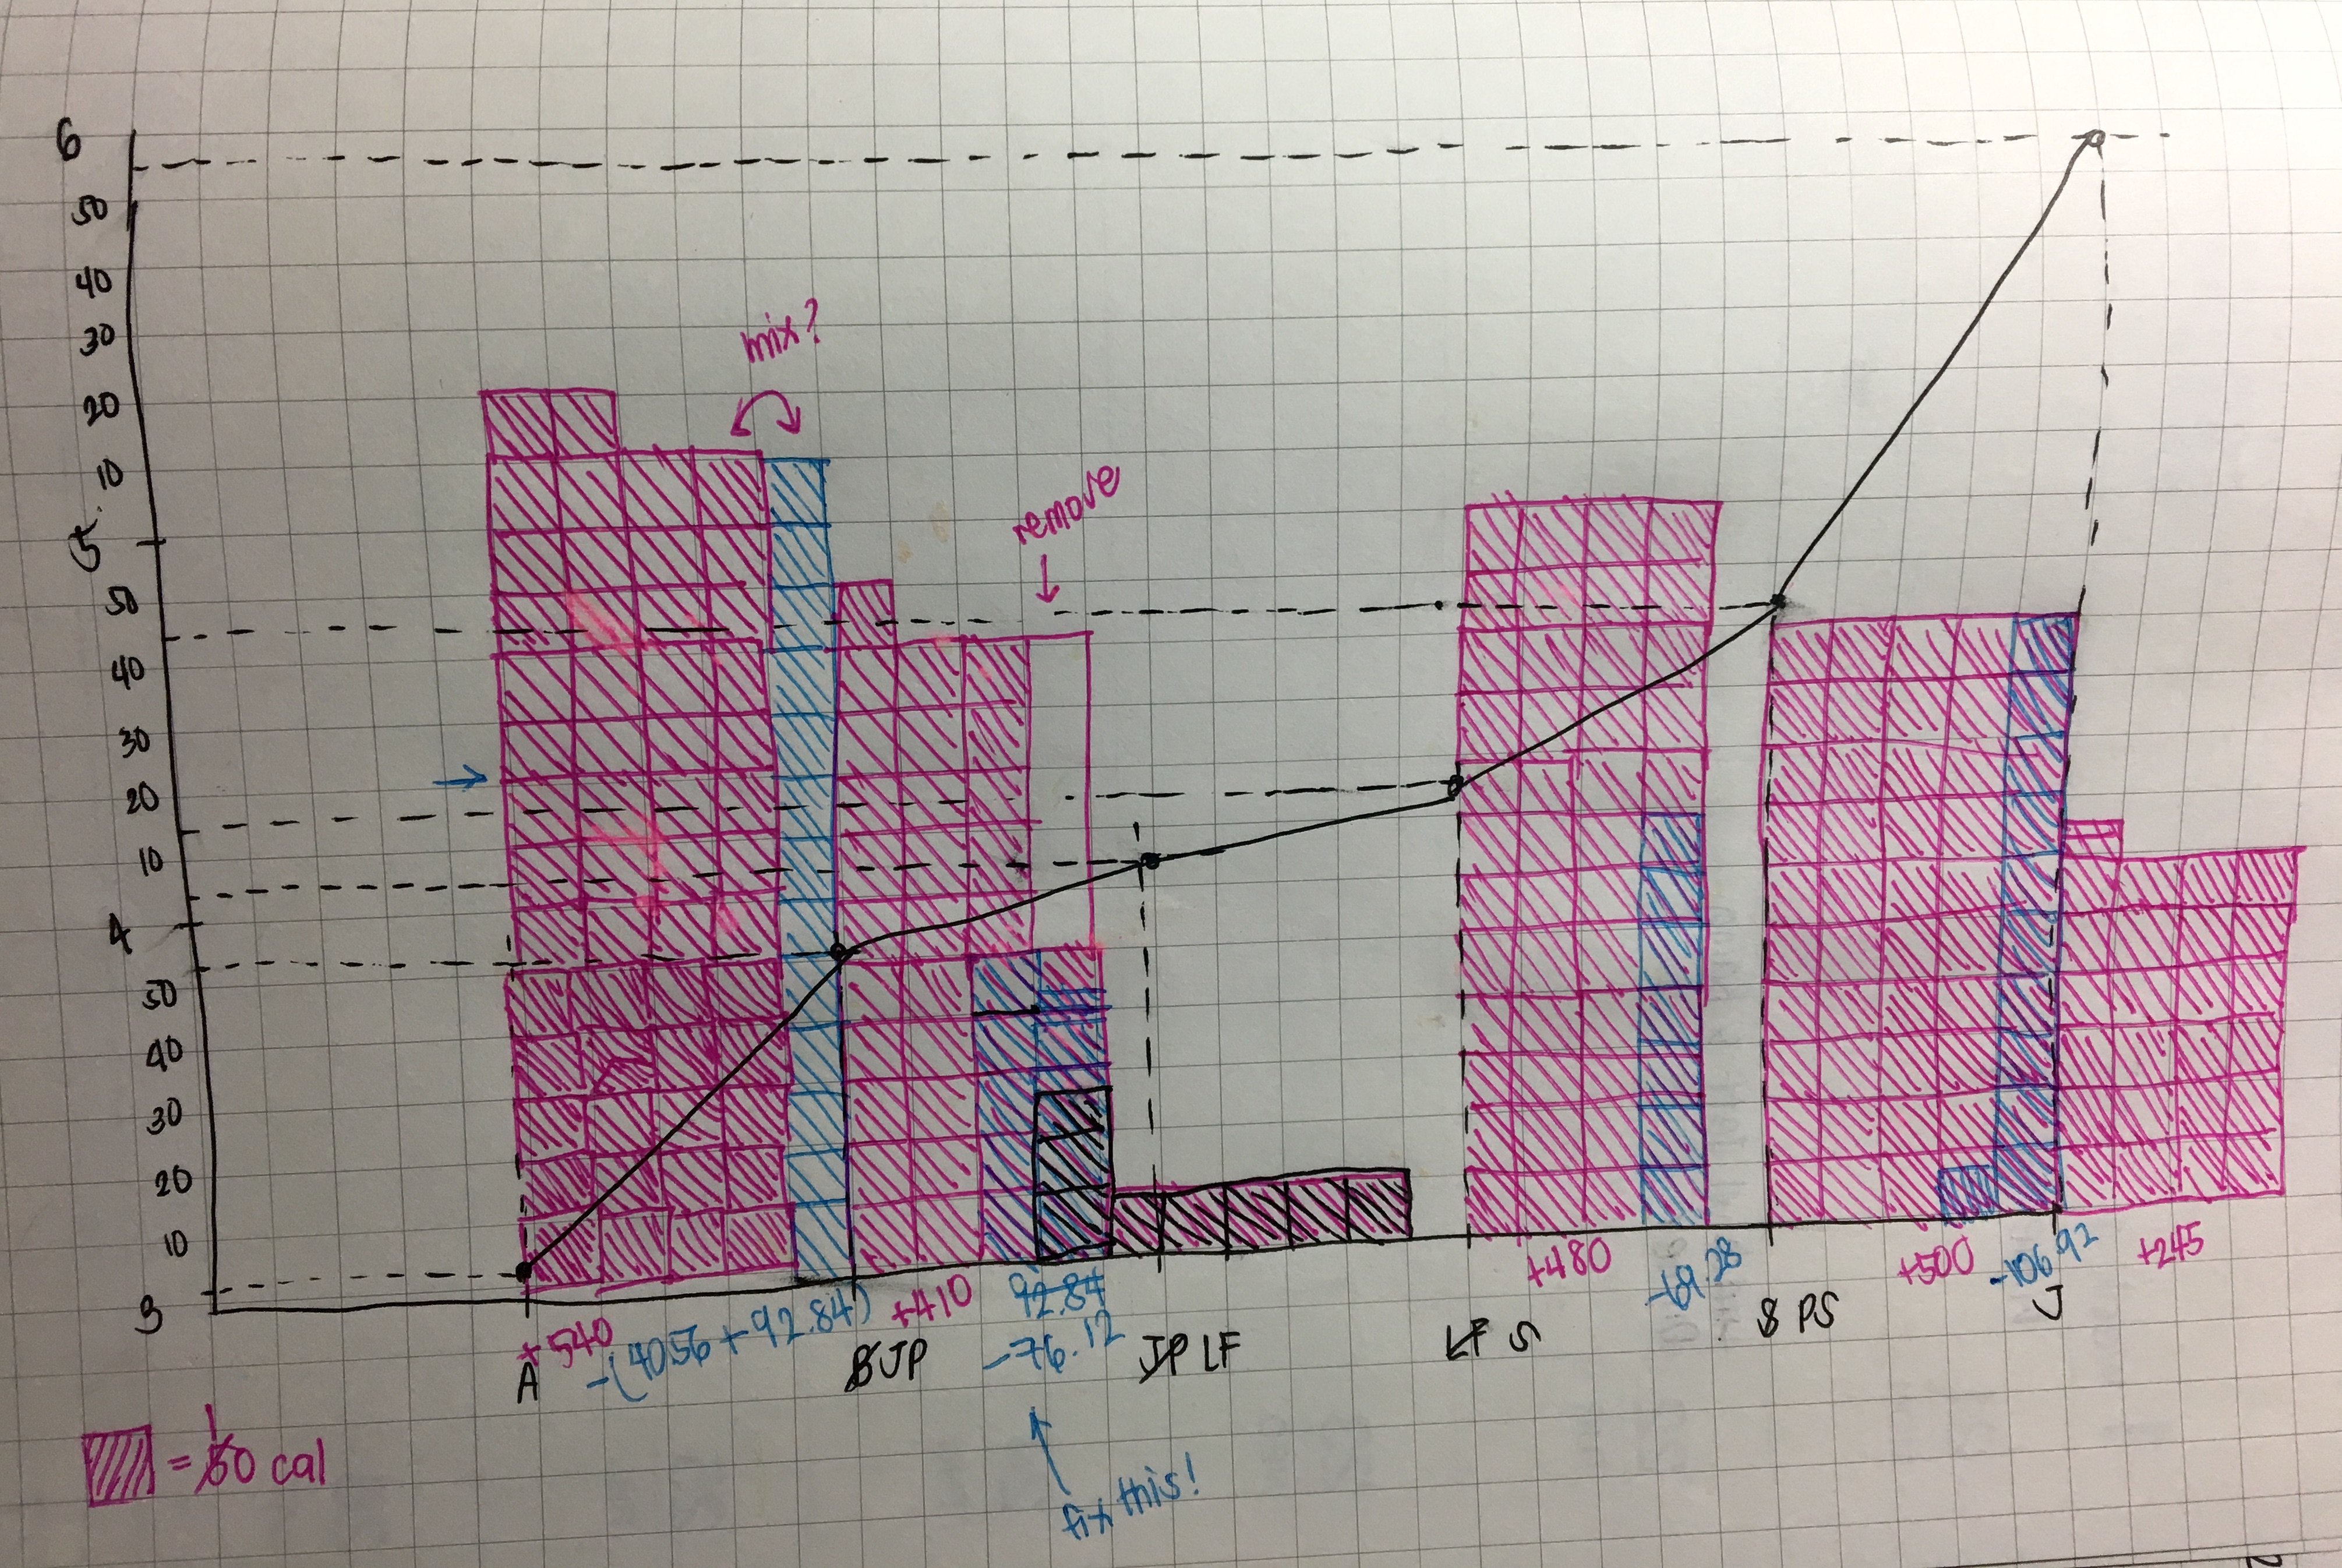 6
50
40
30
20
10
5
50
40
30
20
10
4
50
40
30
20
10
3
mix?
remove
+540
-(40.56 + 92.84)
+410
92.84
-76.12
+480
+500
-106.92
+245
A
BJP
JP LF
LF S
S PS
J
= 10 cal
fix this!